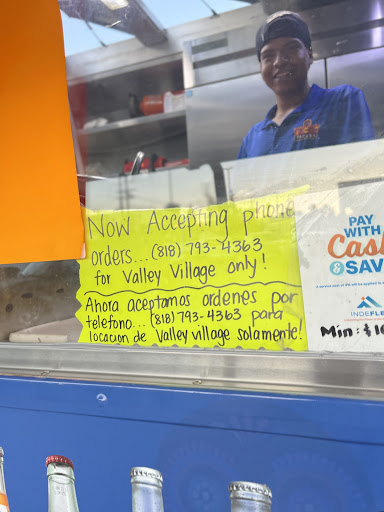 Now Accepting phone
orders... (818) 793-4363
for Valley Village only!
Ahora aceptamos ordenes por
telefono... (818) 793-4363 para
locacion de Valley village solamente!
PAY
WITH
Cas
& SAV
INDEFLE
Min: $10